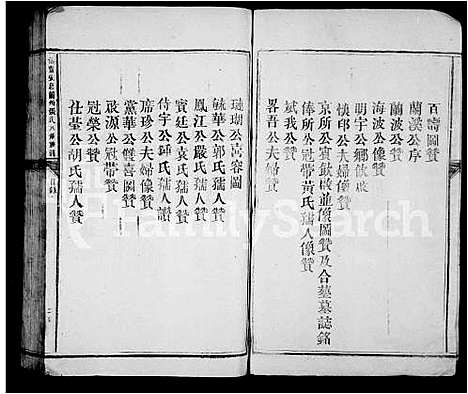 百壽圖贊
蘭溪公序
蘭波公贊
海波公像贊
明宇公鄉飲
懷邱公夫婦像贊
京所公飲並像圖贊及合墓墓誌銘
俸所公冠帶黃氏孺人像贊
斌我公贊
畧吾公夫婦贊
璉瑚公喜容圖
毓華公郭氏孺人贊
鳳江公嚴氏孺人贊
實廷公袁氏孺人贊
侍宇公鍾氏孺人讚
席珍公夫婦像贊
黨華公雙喜圖贊
公冠帶贊
冠榮公贊
社瑩公胡氏孺人贊
FamilySearch